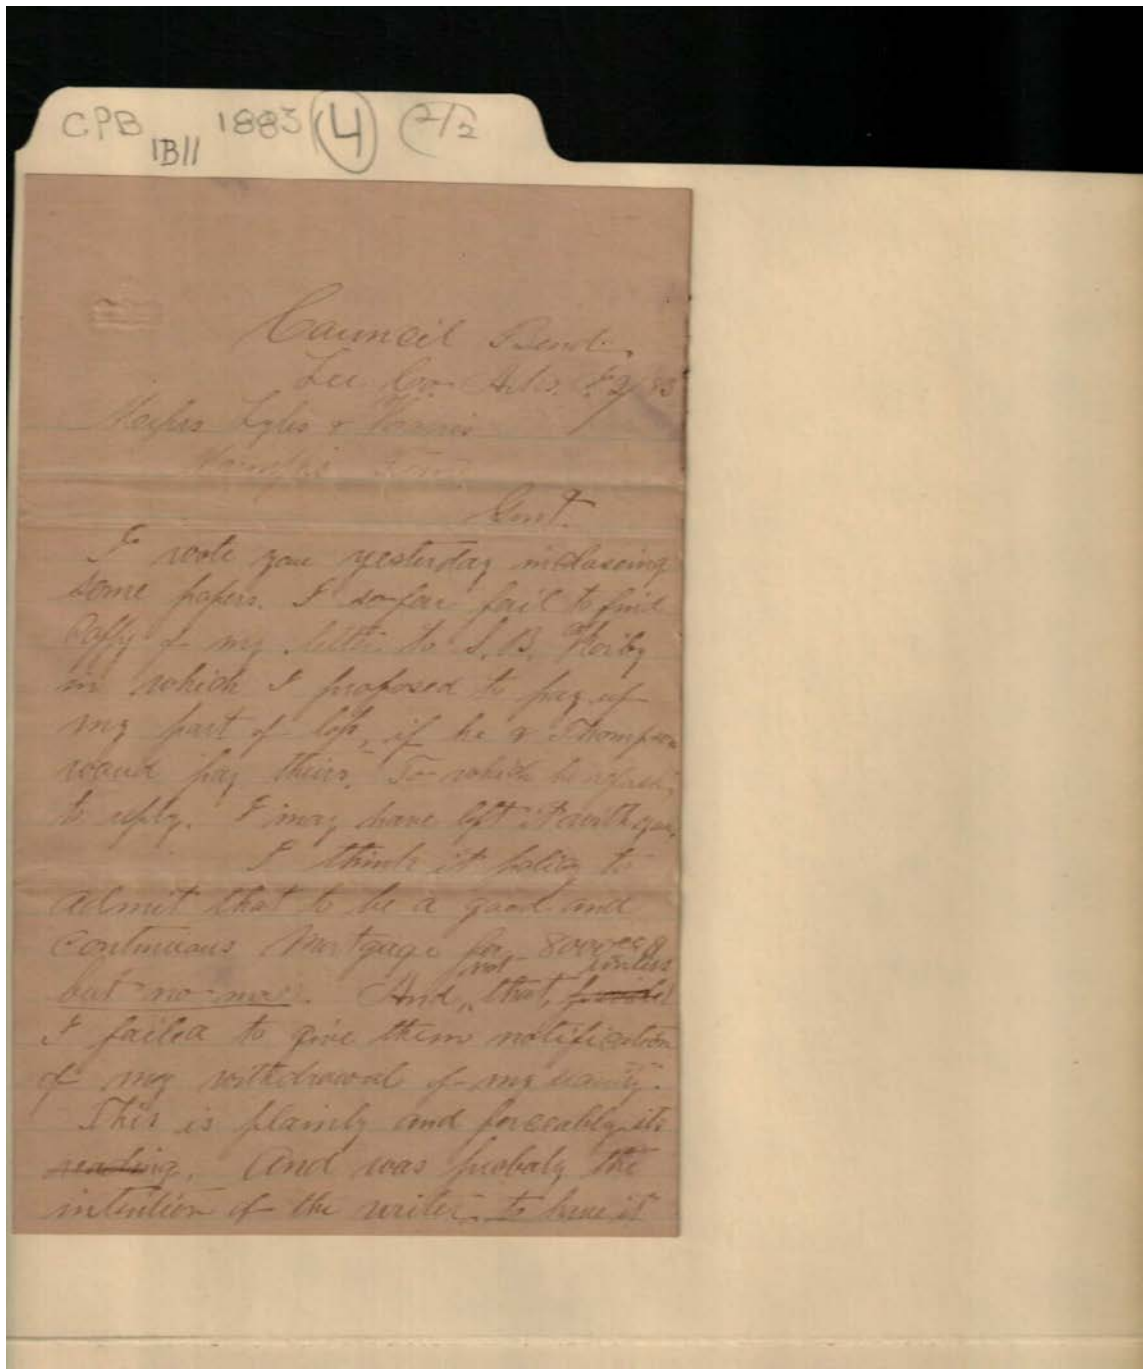 CPB 1B11 1883 (4) (2/2)
Council Bend
Lee Co. Arks. 83
Messrs Lyles &
Memphis Tenn
Gent.
I wote you yesterday inclaseing
some papers. I so far fail to find
Coppy of my letter to S. B.
in which I proposed to pay up
my part of loss, if he & Thompson
woud pay theirs. To which he
to reply. I may have left it with you.
I think it policy to
admit that to be a good and
Continuous Mortgage for 8000
but no more. And, not that, unless
I failed to give them notification
of my withdrawal of my
This is plainly and forceably its
reading. And was probaly the
intention of the writer to have it